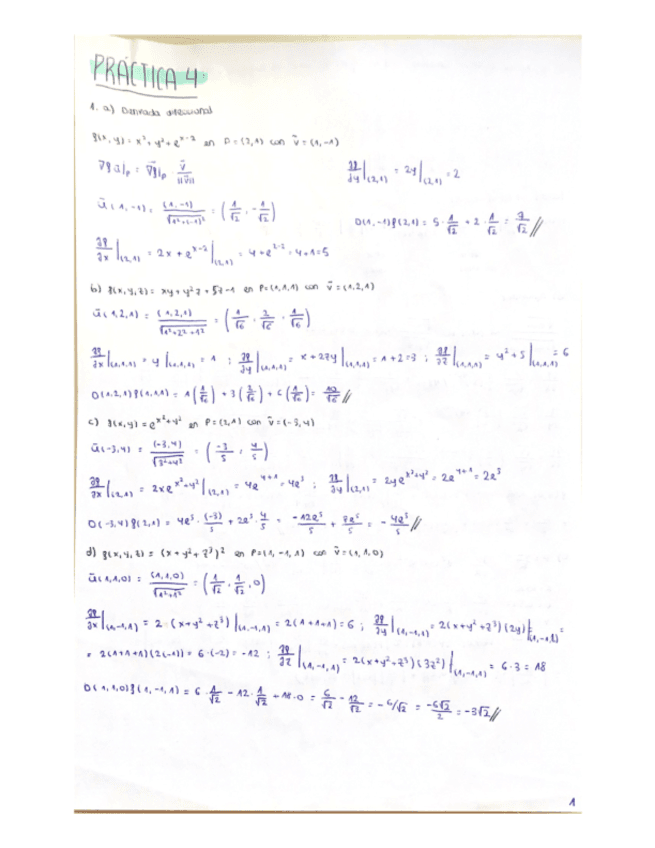 PRÁCTICA 4
1. a) Derivada direccional
f(x,y) = x² + y² + e^{x-2} en P=(2,1) con v̄=(1,-1)
∇f ū|_p = ∇̄f|_p · v̄/||v̄||
∂f/∂y|_(2,1) = 2y|_(2,1) = 2
ū(1,-1) = (1,-1)/√(1²+(-1)²) = (1/√2, -1/√2)
D(1,-1)f(2,1) = 5 · 1/√2 + 2 · 1/√2 = 7/√2 //
∂f/∂x|_(2,1) = 2x + e^{x-2}|_(2,1) = 4 + e^{2-2} = 4+1=5
b) f(x,y,z) = xy + y²z + 5z - 1 en P=(1,1,1) con v̄=(1,2,1)
ū(1,2,1) = (1,2,1)/√(1²+2²+1²) = (1/√6, 2/√6, 1/√6)
∂f/∂x|_(1,1,1) = y|_(1,1,1) = 1 ; ∂f/∂y|_(1,1,1) = x + 2zy|_(1,1,1) = 1+2=3 ; ∂f/∂z|_(1,1,1) = y² + 5|_(1,1,1) = 6
D(1,2,1)f(1,1,1) = 1(1/√6) + 3(2/√6) + 6(1/√6) =
c) f(x,y) = e^{x²+y²} en P=(2,1) con v̄=(-3,4)
ū(-3,4) = (-3,4)/√(3²+4²) = (-3/5, 4/5)
∂f/∂x|_(2,1) = 2xe^{x²+y²}|_(2,1) = 4e^{4+1} = 4e⁵ ; ∂f/∂y|_(2,1) = 2ye^{x²+y²} = 2e^{4+1} = 2e⁵
D(-3,4)f(2,1) = 4e⁵ · (-3)/5 + 2e⁵ · 4/5 = -12e⁵/5 + /5 = - 4e⁵/5 //
d) f(x,y,z) = (x + y² + z³)² en P=(1,-1,1) con v̄=(1,1,0)
ū(1,1,0) = (1,1,0)/√(1²+1²) = (1/√2, 1/√2, 0)
∂f/∂x|_(1,-1,1) = 2 · (x + y² + z³)|_(1,-1,1) = 2(1+1+1) = 6 ; ∂f/∂y|_(1,-1,1) = 2(x+y²+z³)(2y)|_(1,-1,1) =
= 2(1+1+1)(2(-1)) = 6·(-2) = -12 ; ∂f/∂z|_(1,-1,1) = 2(x+y²+z³)(3z²)|_(1,-1,1) = 6·3 = 18
D(1,1,0)f(1,-1,1) = 6 · 1/√2 - 12 · 1/√2 + 18·0 = 6/√2 - 12/√2 = -6/√2 = -6√2/2 = -3√2 //
1